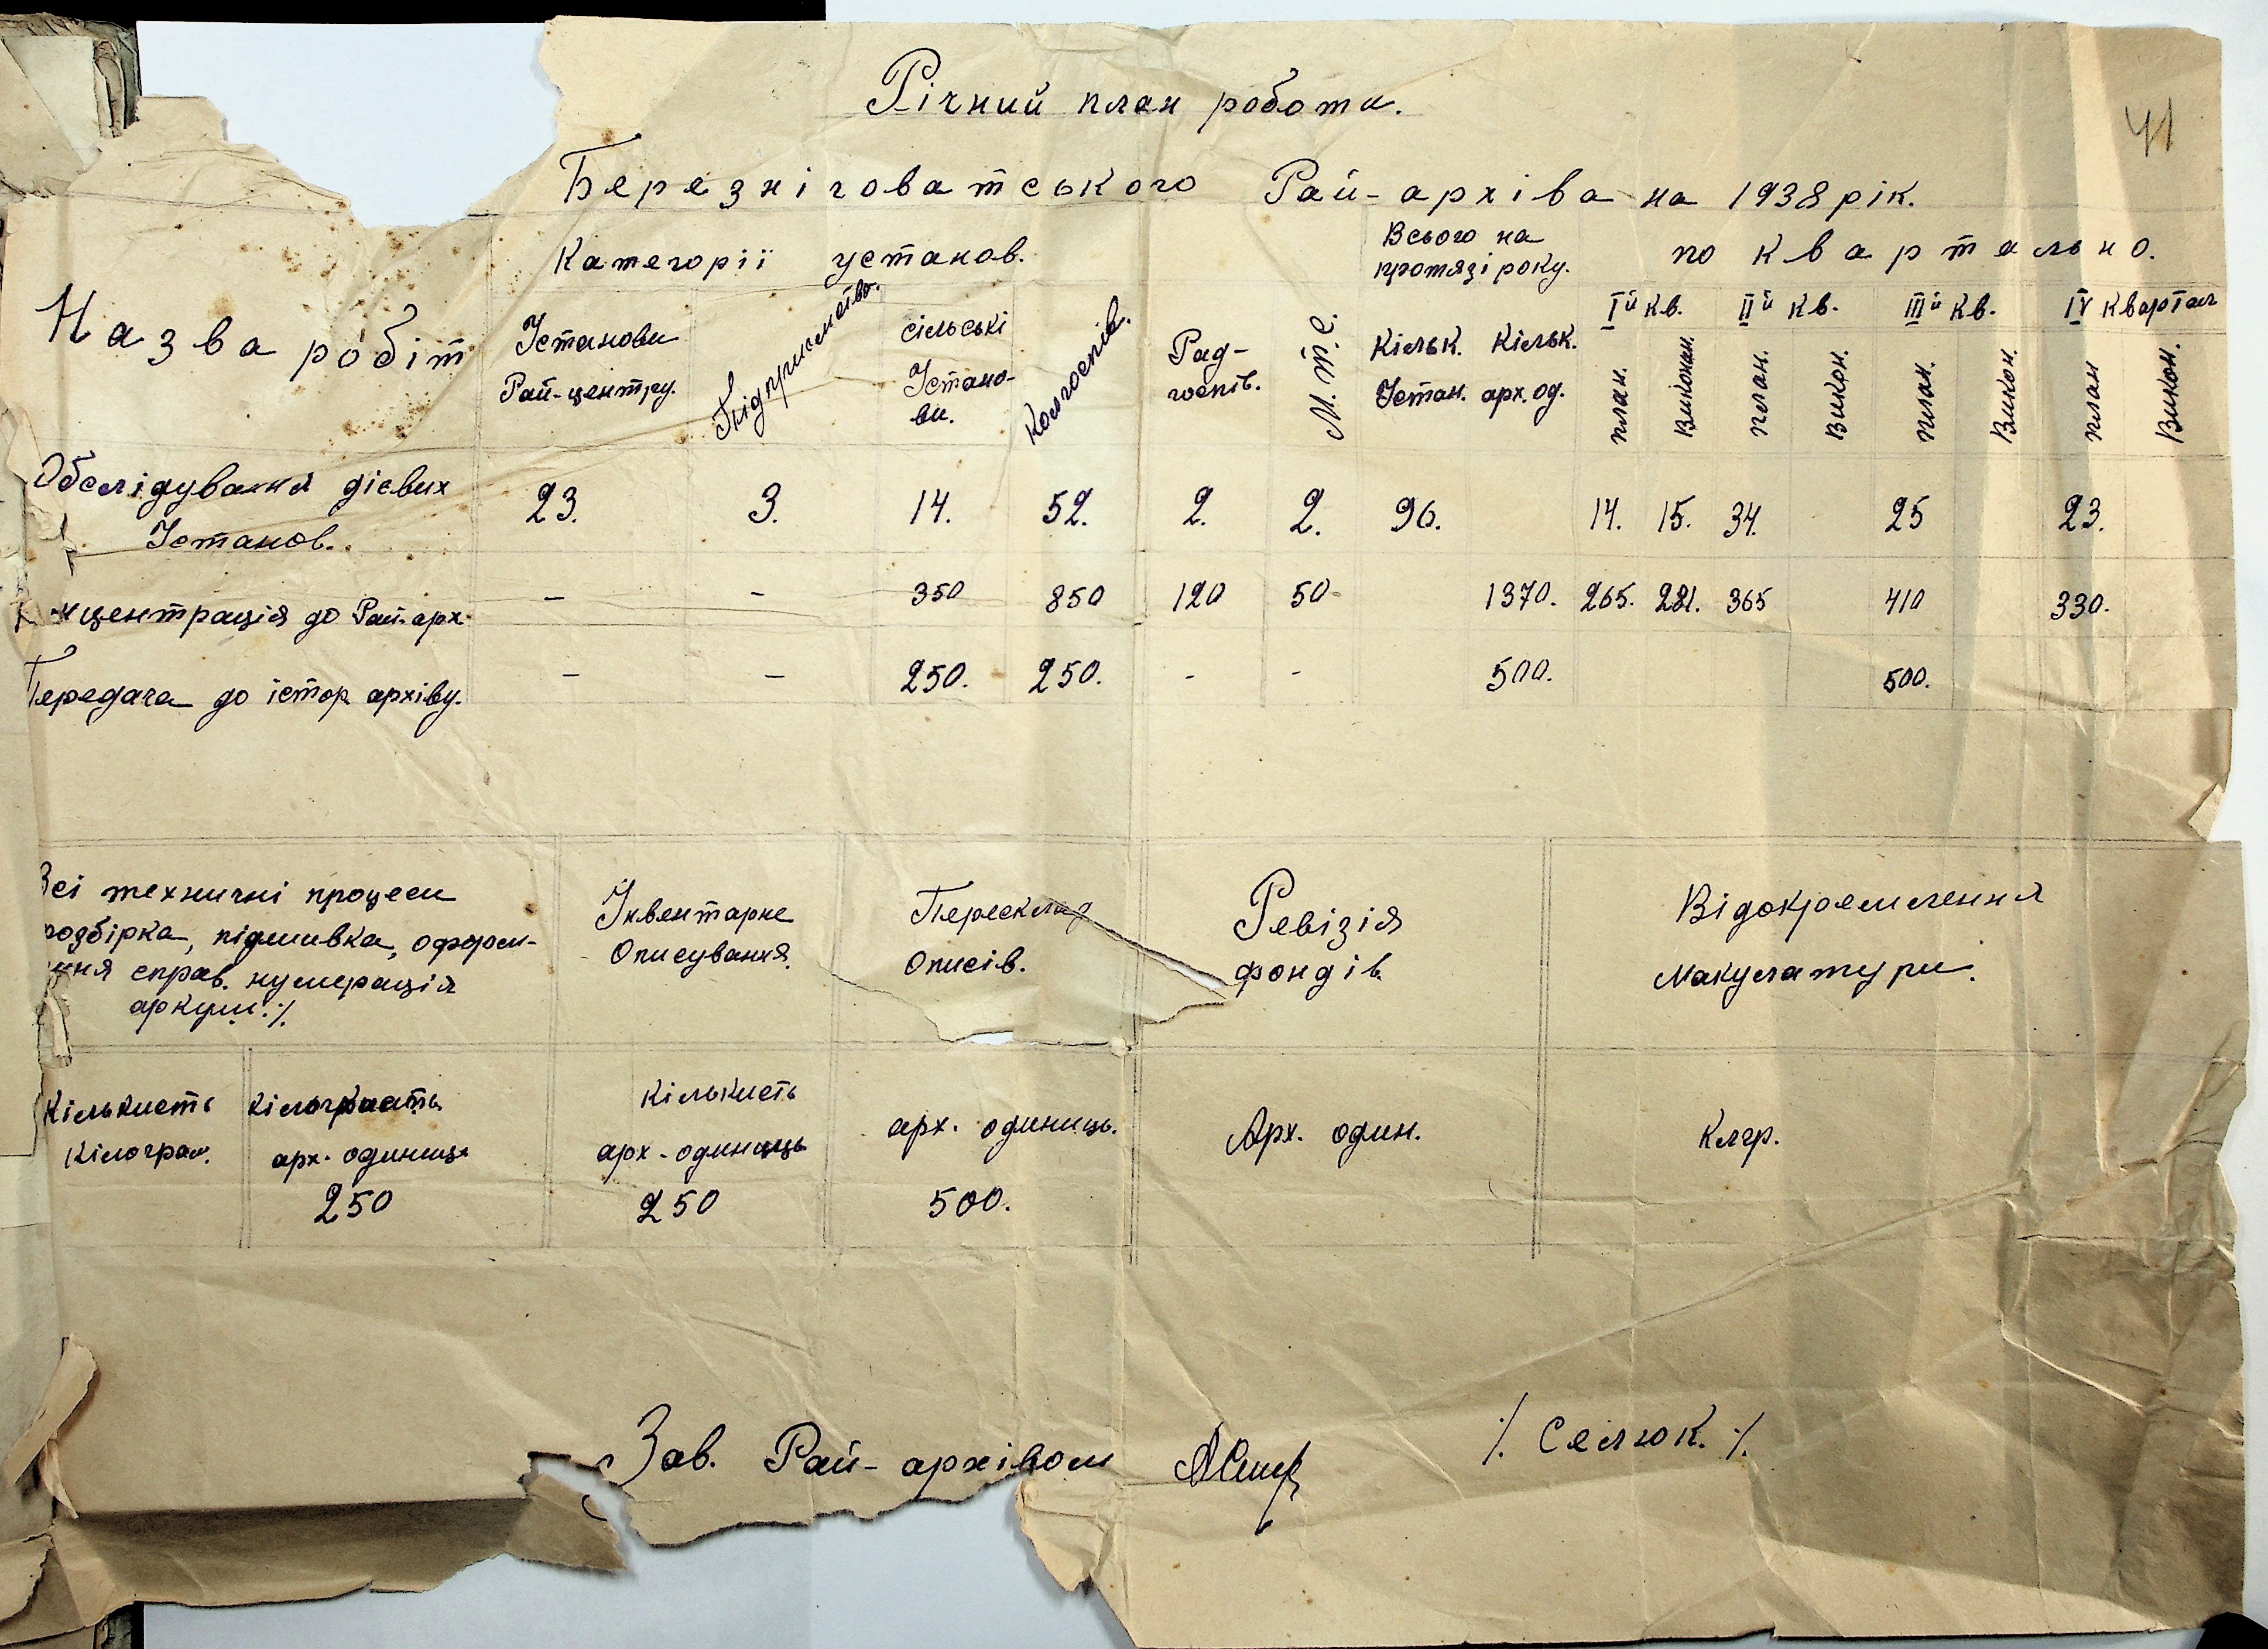 Річний план робота.
41
Березніговатського Рай-архіва на 1938 рік.
Назва робіт
Категорії установ.
Всього на протязі року.
по квартально.
Установи Рай-центру.
Підприємства.
сільські Установи.
Колгоспів.
Рад-госпів.
М.Т.С.
Кільк. Устан.
Кільк. арх. од.
Iй кв.
IIй кв.
IIIй кв.
IV квартал
план. Виконан. план. Викон. план. Викон. план Викон.
Обслідування дієвих Установ. 23. 3. 14. 52. 2. 2. 96. 14. 15. 34. 25 23.
нцентрація до Рай-арх. - - 350 850 120 50 1370. 265. 281. 365 410 330.
Передача до істор. архіву. - - 250. 250. - - 500. 500.
Всі техничні процеси
розбірка, підшивка, оформ-
ння справ. нумерація
аркуш. ./.
Інвентарне
Описування.
Пересклад
Описів.
Ревізія
фондів.
Відокремлення
Макулатури.
Кількисть
Кілограм.
арх. одиниць
250
Кількисть
арх. одиниць
250
арх. одиниць.
500.
Арх. один.
Клгр.
Зав. Рай-архівом ./. Селюк. ./.